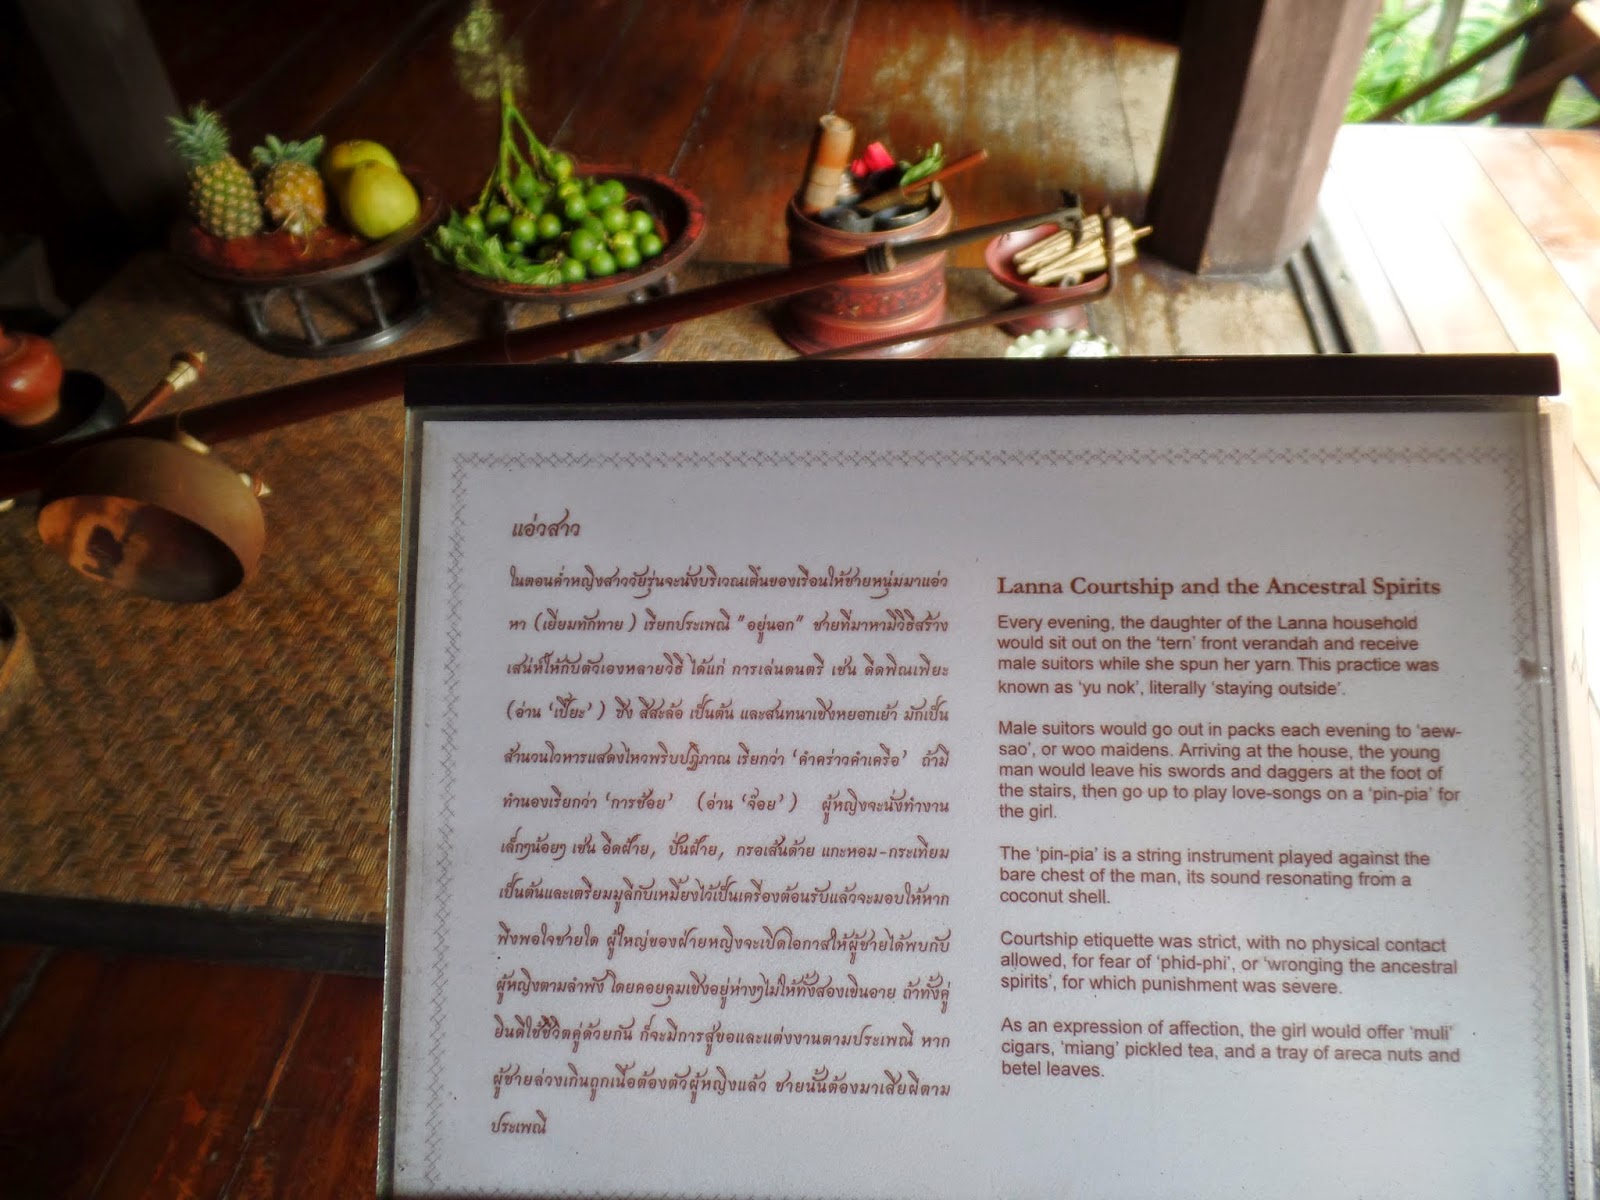 แอ่วสาว
ในตอนค่ำหญิงสาววัยรุ่นจะนั่งบริเวณเติ๋นของเรือนให้ชายหนุ่มมาแอ่ว
หา (เยี่ยมทักทาย) เรียกประเพณี "อยู่นอก" ชายที่มาหามีวิธีสร้าง
เสน่ห์ให้กับตัวเองหลายวิธี ได้แก่ การเล่นดนตรี เช่น ดีดพิณเพียะ
(อ่าน 'เปี๊ยะ') ซึง สีสะล้อ เป็นต้น และสนทนาเชิงหยอกเย้า มักเป็น
สำนวนโวหารแสดงไหวพริบปฏิภาณ เรียกว่า 'คำคร่าวคำเครือ' ถ้ามี
ทำนองเรียกว่า 'การซ้อย' (อ่าน 'จ๊อย') ผู้หญิงจะนั่งทำงาน
เล็กๆน้อยๆ เช่น อีดฝ้าย, ปั่นฝ้าย, กรอเส้นด้าย แกะหอม-กระเทียม
เป็นต้นและเตรียมมูลีกับเหมี้ยงไว้เป็นเครื่องต้อนรับแล้วจะมอบให้หาก
พึงพอใจชายใด ผู้ใหญ่ของฝ่ายหญิงจะเปิดโอกาสให้ผู้ชายได้พบกับ
ผู้หญิงตามลำพัง โดยคอยคุมเชิงอยู่ห่างๆไม่ให้ทั้งสองเขินอาย ถ้าทั้งคู่
ยินดีใช้ชีวิตคู่ด้วยกัน ก็จะมีการสู่ขอและแต่งงานตามประเพณี หาก
ผู้ชายล่วงเกินถูกเนื้อต้องตัวผู้หญิงแล้ว ชายนั้นต้องมาเสียผีตาม
ประเพณี
Lanna Courtship and the Ancestral Spirits
Every evening, the daughter of the Lanna household
would sit out on the 'tern' front verandah and receive
male suitors while she spun her yarn. This practice was
known as 'yu nok', literally 'staying outside'.
Male suitors would go out in packs each evening to 'aew-
sao', or woo maidens. Arriving at the house, the young
man would leave his swords and daggers at the foot of
the stairs, then go up to play love-songs on a 'pin-pia' for
the girl.
The 'pin-pia' is a string instrument played against the
bare chest of the man, its sound resonating from a
coconut shell.
Courtship etiquette was strict, with no physical contact
allowed, for fear of 'phid-phi', or 'wronging the ancestral
spirits', for which punishment was severe.
As an expression of affection, the girl would offer 'muli'
cigars, 'miang' pickled tea, and a tray of areca nuts and
betel leaves.